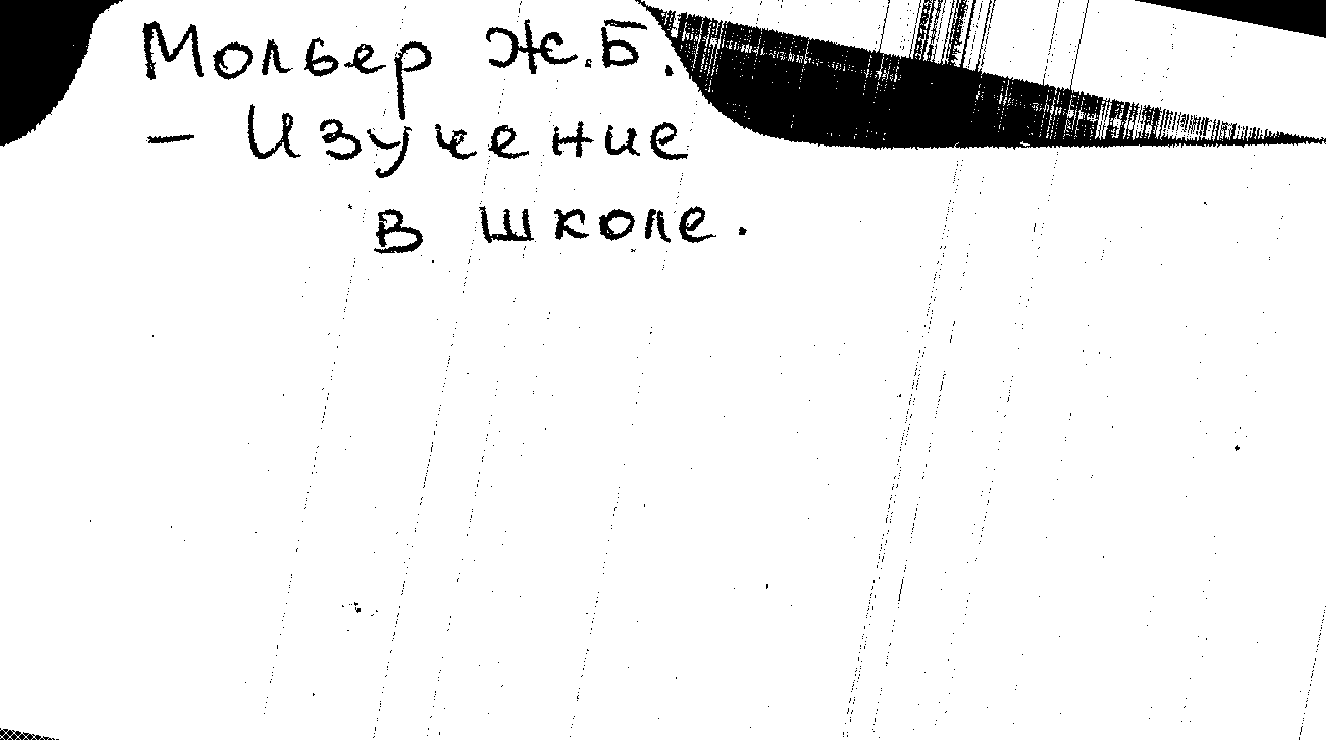 Мольер Ж.Б.
– Изучение
в школе.